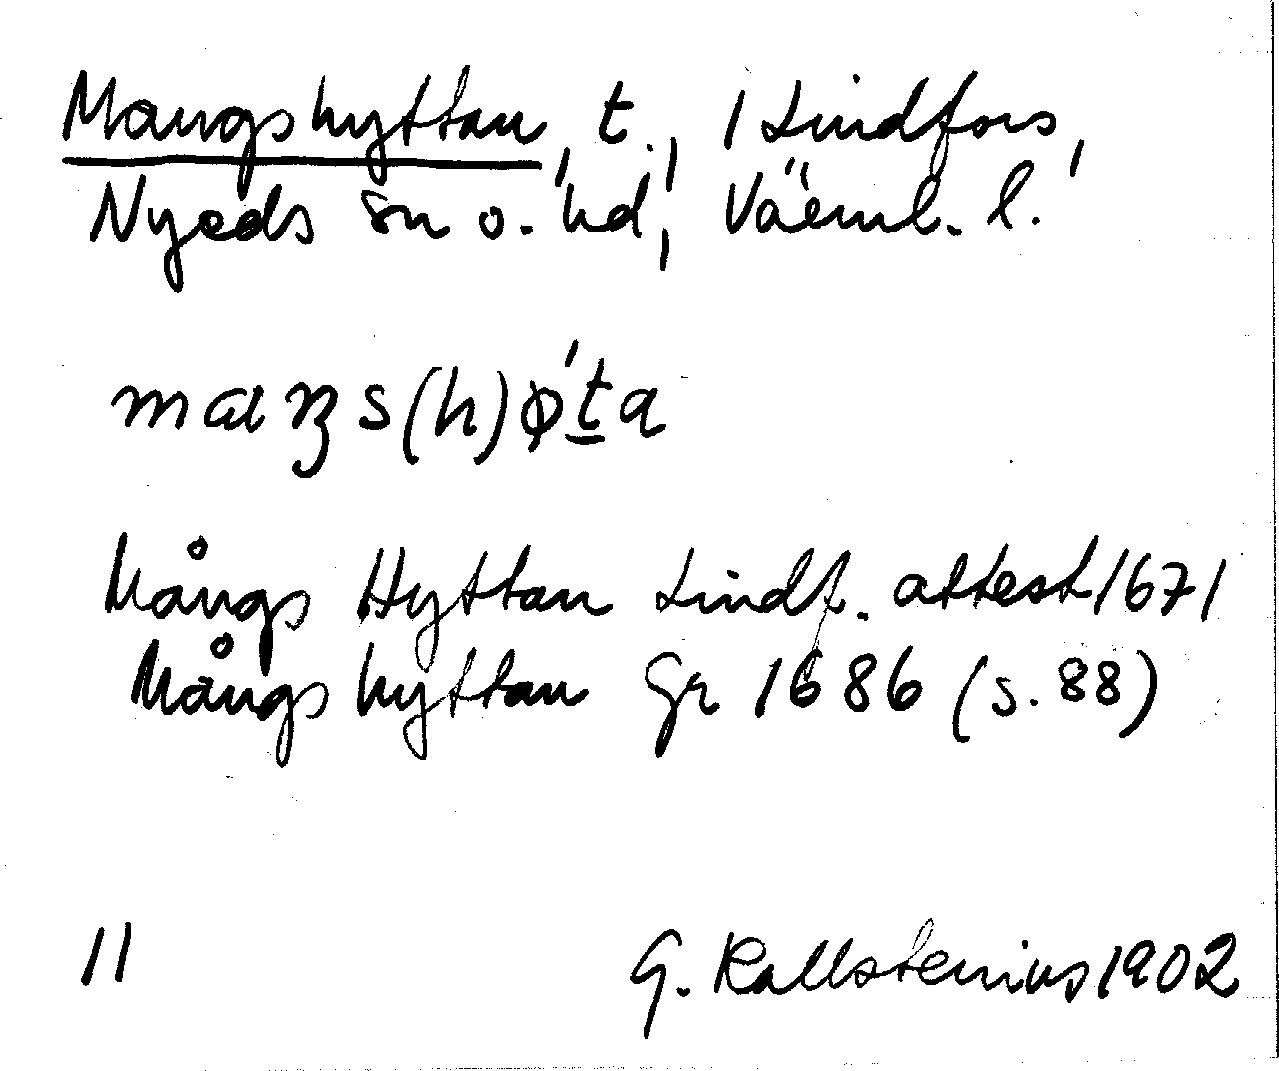 Mangshyttan, t., 1 Lindfors,
Nyeds sn o. hd, Värml. l.
maŋs(h)ǿt̲a
Mångs Hyttan Lindf. attest 1671
Mångshyttan Gr 1686 (s. 88)
11 G. Kallstenius 1902